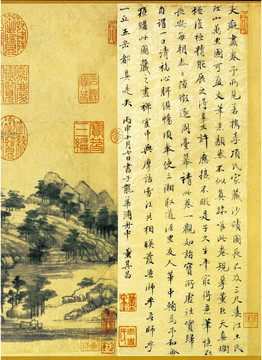 大癡畫卷予所見若檇李項氏家藏沙磧圖長不及三尺婁江王氏
江山萬里圖可盈丈筆意頹然不似真跡唯此卷規摹董巨天真爛
熳復極精能展之得三丈許應接不暇是子久生平最得意筆憶在
長安每朝參之隙徵逐周臺幕請此卷一觀如詣寶所虛往實歸
自謂一日清福心脾俱暢頃奉使三湘取道涇里友人華中翰為予和會
獲購此圖藏之畫禪室中與摩詰雪江共相映發吾師乎吾師乎
一丘五岳都具是矣 丙申十月七日書于龍華浦舟中 董其昌
寶笈
三編